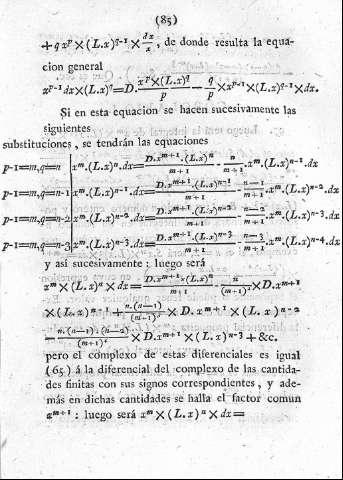 (85)
+ q x^p × (L.x)^{q-1} × dx/x, de donde resulta la equa-
cion general
x^{p-1} dx × (L.x)^q = D. x^p × (L.x)^q / p - q/p × x^{p-1} × (L.x)^{q-1} × dx.
Si en esta equacion se hacen sucesivamente las
siguientes
substituciones, se tendrán las equaciones
p-1=m, q=n | x^m.(L.x)^n.dx = D.x^{m+1}.(L.x)^n / m+1 - n/m+1 .x^m.(L.x)^{n-1}.dx
p-1=m, q=n-1 | x^m.(L.x)^{n-1}.dx = D.x^{m+1}.(L.x)^{n-1} / m+1 - n-1/m+1 .x^m.(L.x)^{n-2}.dx
p-1=m, q=n-2 | x^m.(L.x)^{n-2}.dx = D.x^{m+1}.(L.x)^{n-2} / m+1 - n-2/m+1 .x^m.(L.x)^{n-3}.dx
p-1=m, q=n-3 | x^m.(L.x)^{n-3}.dx = D.x^{m+1}.(L.x)^{n-3} / m+1 - n-3/m+1 .x^m.(L.x)^{n-4}.dx
y asi sucesivamente: luego será
x^m × (L.x)^n × dx = D.x^{m+1} × (L.x)^n / m+1 - n/(m+1)^2 × D.x^{m+1}
× (L.x)^{n-1} + n.(n-1)/(m+1)^3 × D.x^{m+1} × (L.x)^{n-2}
- n.(n-1).(n-2)/(m+1)^4 × D.x^{m+1} × (L.x)^{n-3} + &c.
pero el complexo de estas diferenciales es igual
(65) á la diferencial del complexo de las cantida-
des finitas con sus signos correspondientes, y ade-
más en dichas cantidades se halla el factor comun
x^{m+1}: luego será x^m × (L.x)^n × dx =